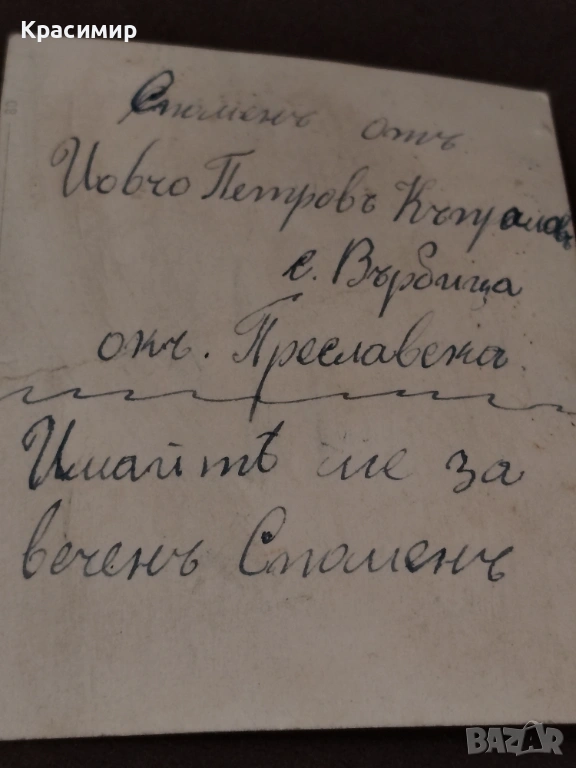 Красимир
Споменъ отъ
Йовчо Петровъ
с. Върбица
окъ. Преславска
Имайтѣ ме за
веченъ Споменъ
BAZAR